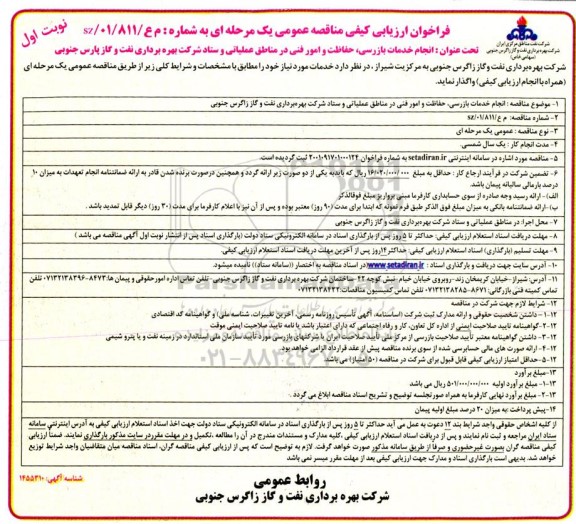 نوبت اول
فراخوان ارزیابی کیفی مناقصه عمومی یک مرحله ای به شماره : م ع/۸۱۱/sz/۰۱
تحت عنوان : انجام خدمات بازرسی، حفاظت و امور فنی در مناطق عملیاتی و ستاد شرکت بهره برداری نفت و گاز پارس جنوبی
شرکت نفت مناطق مرکزی ایران
شرکت بهره برداری نفت و گاز زاگرس جنوبی
(سهامی خاص)
شرکت بهره‌برداری نفت و گاز زاگرس جنوبی به مرکزیت شیراز، در نظر دارد خدمات مورد نیاز خود را مطابق با مشخصات و شرایط کلی زیر از طریق مناقصه عمومی یک مرحله ای
(همراه با انجام ارزیابی کیفی) واگذار نماید.
۱- موضوع مناقصه : انجام خدمات بازرسی، حفاظت و امور فنی در مناطق عملیاتی و ستاد شرکت بهره‌برداری نفت و گاز زاگرس جنوبی
۲- شماره مناقصه: م ع/۸۱۱/sz/۰۱
۳- نوع مناقصه : عمومی یک مرحله ای
۴- مدت انجام کار : یک سال شمسی.
۵- مناقصه مورد اشاره در سامانه اینترنتی setadiran.ir به شماره فراخوان ۲۰۰۱۰۹۱۷۰۱۰۰۰۱۳۴ ثبت گردیده است.
۶- تضمین شرکت در فرآیند ارجاع کار: حداقل به مبلغ ۱۶/۰۲۰/۰۰۰/۰۰۰ ریال که بایدبه یکی از دو صورت زیر ارائه گردد و همچنین درصورت برنده شدن قادر به ارائه ضمانتنامه انجام تعهدات به میزان ۱۰
درصد بارمالی سالیانه پیمان باشد.
الف) - ارائه رسید وجه صادره از سوی حسابداری کارفرما مبنی برواریز مبلغ فوق‌الذکر
ب) - ارائه ضمانتنامه بانکی به میزان مبلغ فوق الذکر طبق فرم نمونه که ابتدا برای مدت (۹۰ روز) معتبر بوده و پس از آن نیز با اعلام کارفرما برای مدت (۳۰ روز) دیگر قابل تمدید باشد.
۷- محل اجرا: در مناطق عملیاتی و ستاد شرکت بهره‌برداری نفت و گاز زاگرس جنوبی
۸- مهلت دریافت اسناد استعلام ارزیابی کیفی: حداکثر تا ۵ روز پس از بارگذاری اسناد در سامانه الکترونیکی ستاد دولت (بارگذاری اسناد پس از انتشار نوبت اول آگهی مناقصه می باشد )
۹- مهلت تسلیم (بارگذاری) اسناد استعلام ارزیابی کیفی: حداکثر ۱۴روز پس از آخرین مهلت دریافت اسناد استعلام ارزیابی کیفی.
۱۰- آدرس سایت جهت دریافت و بارگذاری اسناد : www.setadiran.ir در اسناد مناقصه به اختصار ((سامانه ستاد)) نامیده میشود.
۱۱- آدرس: شیراز-خیابان کریمخان زند- روبروی خیابان خیام -نبش کوچه ۴۲- ساختمان شرکت بهره‌برداری نفت و گاز زاگرس جنوبی- تلفن تماس اداره امور حقوقی و پیمان ها: ۸۴۷۳-۰۷۱۳۲۱۳۸۳۹۶ تلفن
تماس کمیته فنی بازرگانی: ۸۶۷۱-۰۷۱۳۲۱۳۸۲۸۵ تلفن تماس کمیسیون مناقصات: ۰۷۱۳۲۱۳۸۴۴۴
۱۲- شرایط لازم جهت شرکت در مناقصه
۱-۱۲- داشتن شخصیت حقوقی و ارائه مدارک ثبت شرکت (اساسنامه، آگهی تأسیس روزنامه رسمی، آخرین تغییرات، شناسه ملی، و گواهینامه کد اقتصادی
۲-۱۲-گواهینامه تایید صلاحیت ایمنی از اداره کل تعاون، کار و رفاه اجتماعی که دارای اعتبار باشد یا نامه تایید صلاحیت ایمنی موقت
۳-۱۲- داشتن گواهینامه معتبر تأیید صلاحیت بازرسی از مرکز ملی تایید صلاحیت ایران یا شرکتهای بازرسی مورد تایید سازمان ملی استاندارد در زمینه نفت و یا پترو شیمی
۴-۱۲- ارائه صورت های مالی حسابرسی شده از سوی برنده مناقصه پیش از عقد قرارداد الزامی خواهد بود.
۵-۱۲-حداقل امتیاز ارزیابی کیفی قابل قبول برای شرکت در مناقصه (۵۰ امتیاز) می باشد.
۱۳-مبلغ برآورد
۱-۱۳- مبلغ برآورد اولیه ۵۰۱/۰۰۰/۰۰۰/۰۰۰ ریال می باشد
۲-۱۳- مبلغ برآورد نهایی کارفرما به همراه صورتجلسه توضیح و تشریح اسناد مناقصه ابلاغ می گردد .
۱۴-پیش پرداخت به میزان ۲۰ درصد مبلغ اولیه پیمان
از کلیه اشخاص حقوقی واجد شرایط بند ۱۲ دعوت به عمل می آید حداکثر تا ۵ روز پس از بارگذاری اسناد در سامانه الکترونیکی ستاد دولت جهت اخذ اسناد استعلام ارزیابی کیفی به آدرس اینترنتی سامانه
ستاد ایران مراجعه و ثبت نام نمایند و پس از دریافت اسناد استعلام ارزیابی کیفی ،کلیه مدارک و مستندات مندرج در آن را مطالعه ،تکمیل و در مهلت مقرردر سایت مذکور بارگذاری نمایند. ضمناً ارزیابی
کیفی مناقصه گران بصورت غیرحضوری و صرفا از طریق سامانه مذکور صورت خواهد گرفت. لازم به توضیح است که پس از ارزیابی کیفی مناقصه گران، اسناد مناقصه میان متقاضیان واجد شرایط توزیع
خواهد شد. بدیهی است بارگذاری اسناد و مدارک جهت ارزیابی کیفی بعد از مهلت مقرر میسر نمی باشد.
روابط عمومی
شرکت بهره برداری نفت و گاز زاگرس جنوبی
شناسه آگهی: ۱۴۵۵۳۱۰
۰۲۱-۸۸۳۴۹۶۷۰